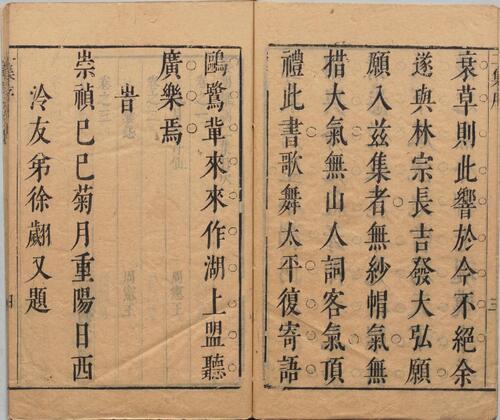 衰草則此響於今不絕余
遂與林宗長吉發大弘願
願入茲集者無紗帽氣無
措大氣無山人詞客氣頂
禮此書歌舞太平復寄語
鷗鷺輩來來作湖上盟聽
廣樂焉
旹
崇禎巳巳菊月重陽日西
泠友弟徐翽又題